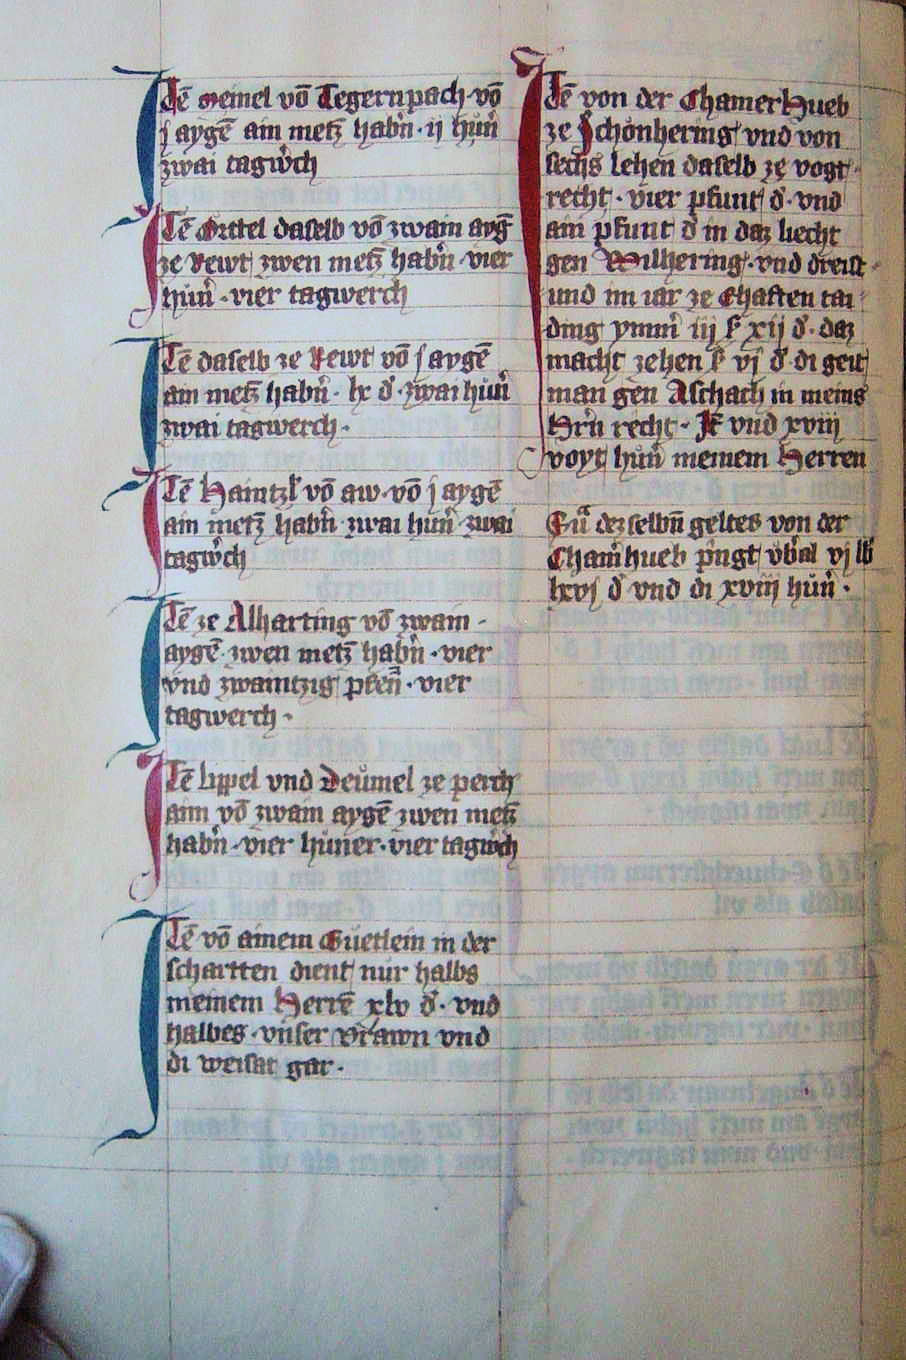 Itē Meinel võ Tegernpach · võ
j aygē ain metz habn̄ · ij hün̄
zwai tagw̄ch
Itē Ortel daselb võ zwain ayḡ
ze Rewt zwen metz habn̄ · vier
hün̄ · vier tagwerch
Itē daselb ze Rewt võ j aygē
ain metz habn̄ · lx d̄ · zwai hün̄
zwai tagwerch ·
Itē Haintzl võ aw · võ j aygē
ain metz habn̄ zwai hün̄ · zwai
tagw̄ch
Itē ze Alharting võ zwain ·
aygē · zwen metz habn̄ · vier
vnd zwaintzig pfen̄ · vier
tagwerch ·
Itē lippel vnd Deümel ze perch
ainn võ zwain aygē zwen metz
habn̄ · vier hüner · vier tagw̄ch
Itē võ ainem Güetlein in der
schartten dient nür halbs
meinem Herrē xlv d̄ · vnd
halbes · vnser vrawn vnd
di weisat gar ·
Itē von der ChamerHueb
ze Schönhering vnd von
sechs lehen daselb ze vogt
recht · vier pfunt d̄ · vnd
ain pfunt d̄ in daz liecht
gen Wilhering · vnd dreist
und im iar ze Ehaften tai
ding ymm̄ iij ß xij d̄ · daz
macht zehen ß vj d̄ · di geit
man gen Aschach in meins
Hr̄n recht · It̄ vnd xviij
voyt hün̄ meinem Herren
Su̅ dez selbn̄ geltes von der
Cham̄hueb p̄ngt vb̄al vj lb̄
lxvj d̄ vnd di xviij hün̄ ·